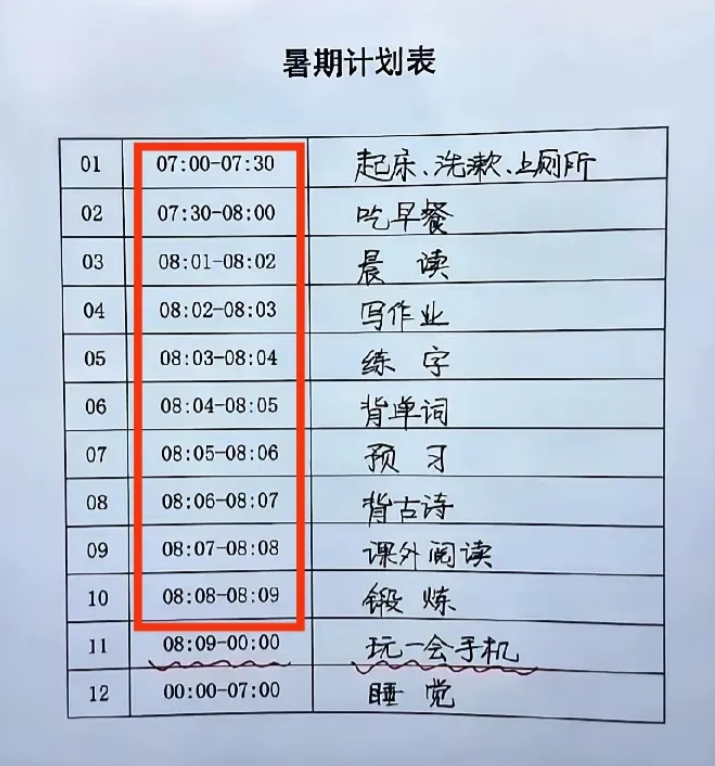 暑期计划表
01 07:00-07:30 起床、洗漱、上厕所
02 07:30-08:00 吃早餐
03 08:01-08:02 晨读
04 08:02-08:03 写作业
05 08:03-08:04 练字
06 08:04-08:05 背单词
07 08:05-08:06 预习
08 08:06-08:07 背古诗
09 08:07-08:08 课外阅读
10 08:08-08:09 锻炼
11 08:09-00:00 玩一会手机
12 00:00-07:00 睡觉